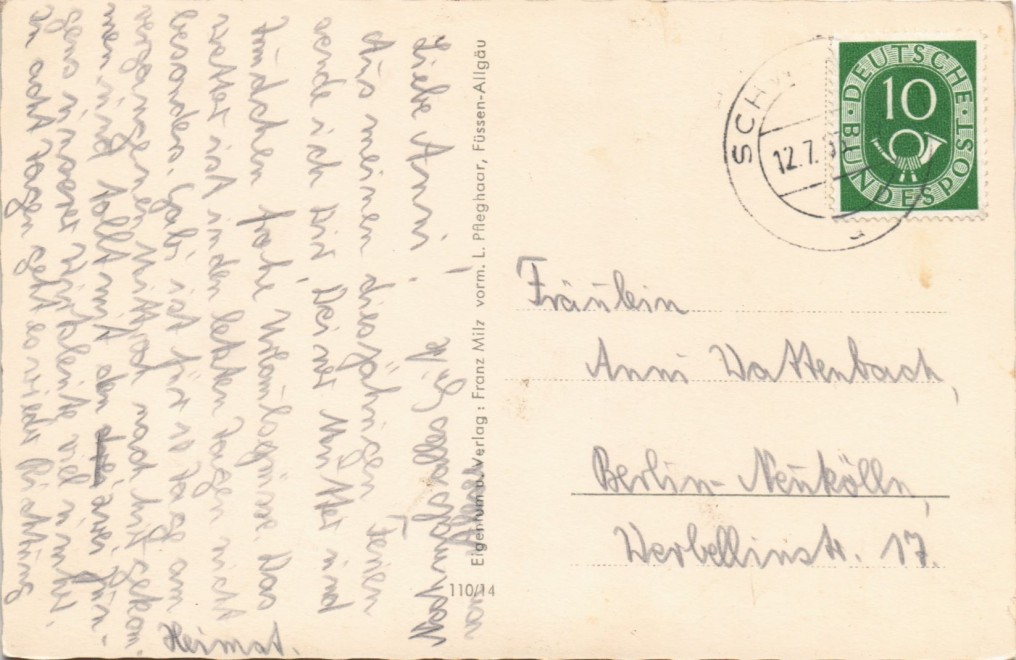 Liebe Anni!
Aus meinen diesjährigen Ferien
sende ich Dir, Deiner Mutter und
Tündchen frohe Urlaubsgrüsse. Das
Wetter ist in den letzten Tagen nicht
besonders. Gabi ist für 10 Tage am
vergangenen Mittwoch nach hier gekom-
men und tollt mit den zwei Jün-
gens unserer Wirtsleute viel umher.
In acht Tagen geht es wieder Richtung
Heimat.
Nochmals alles Gute
Eigentum u. Verlag: Franz Milz vorm. L. Pfleghaar, Füssen-Allgäu
110/14
SCHW
12.7.
DEUTSCHE BUNDESPOST
10
Fräulein
Anni Wattenbach,
Berlin-Neukölln,
Werbellinstr. 17.